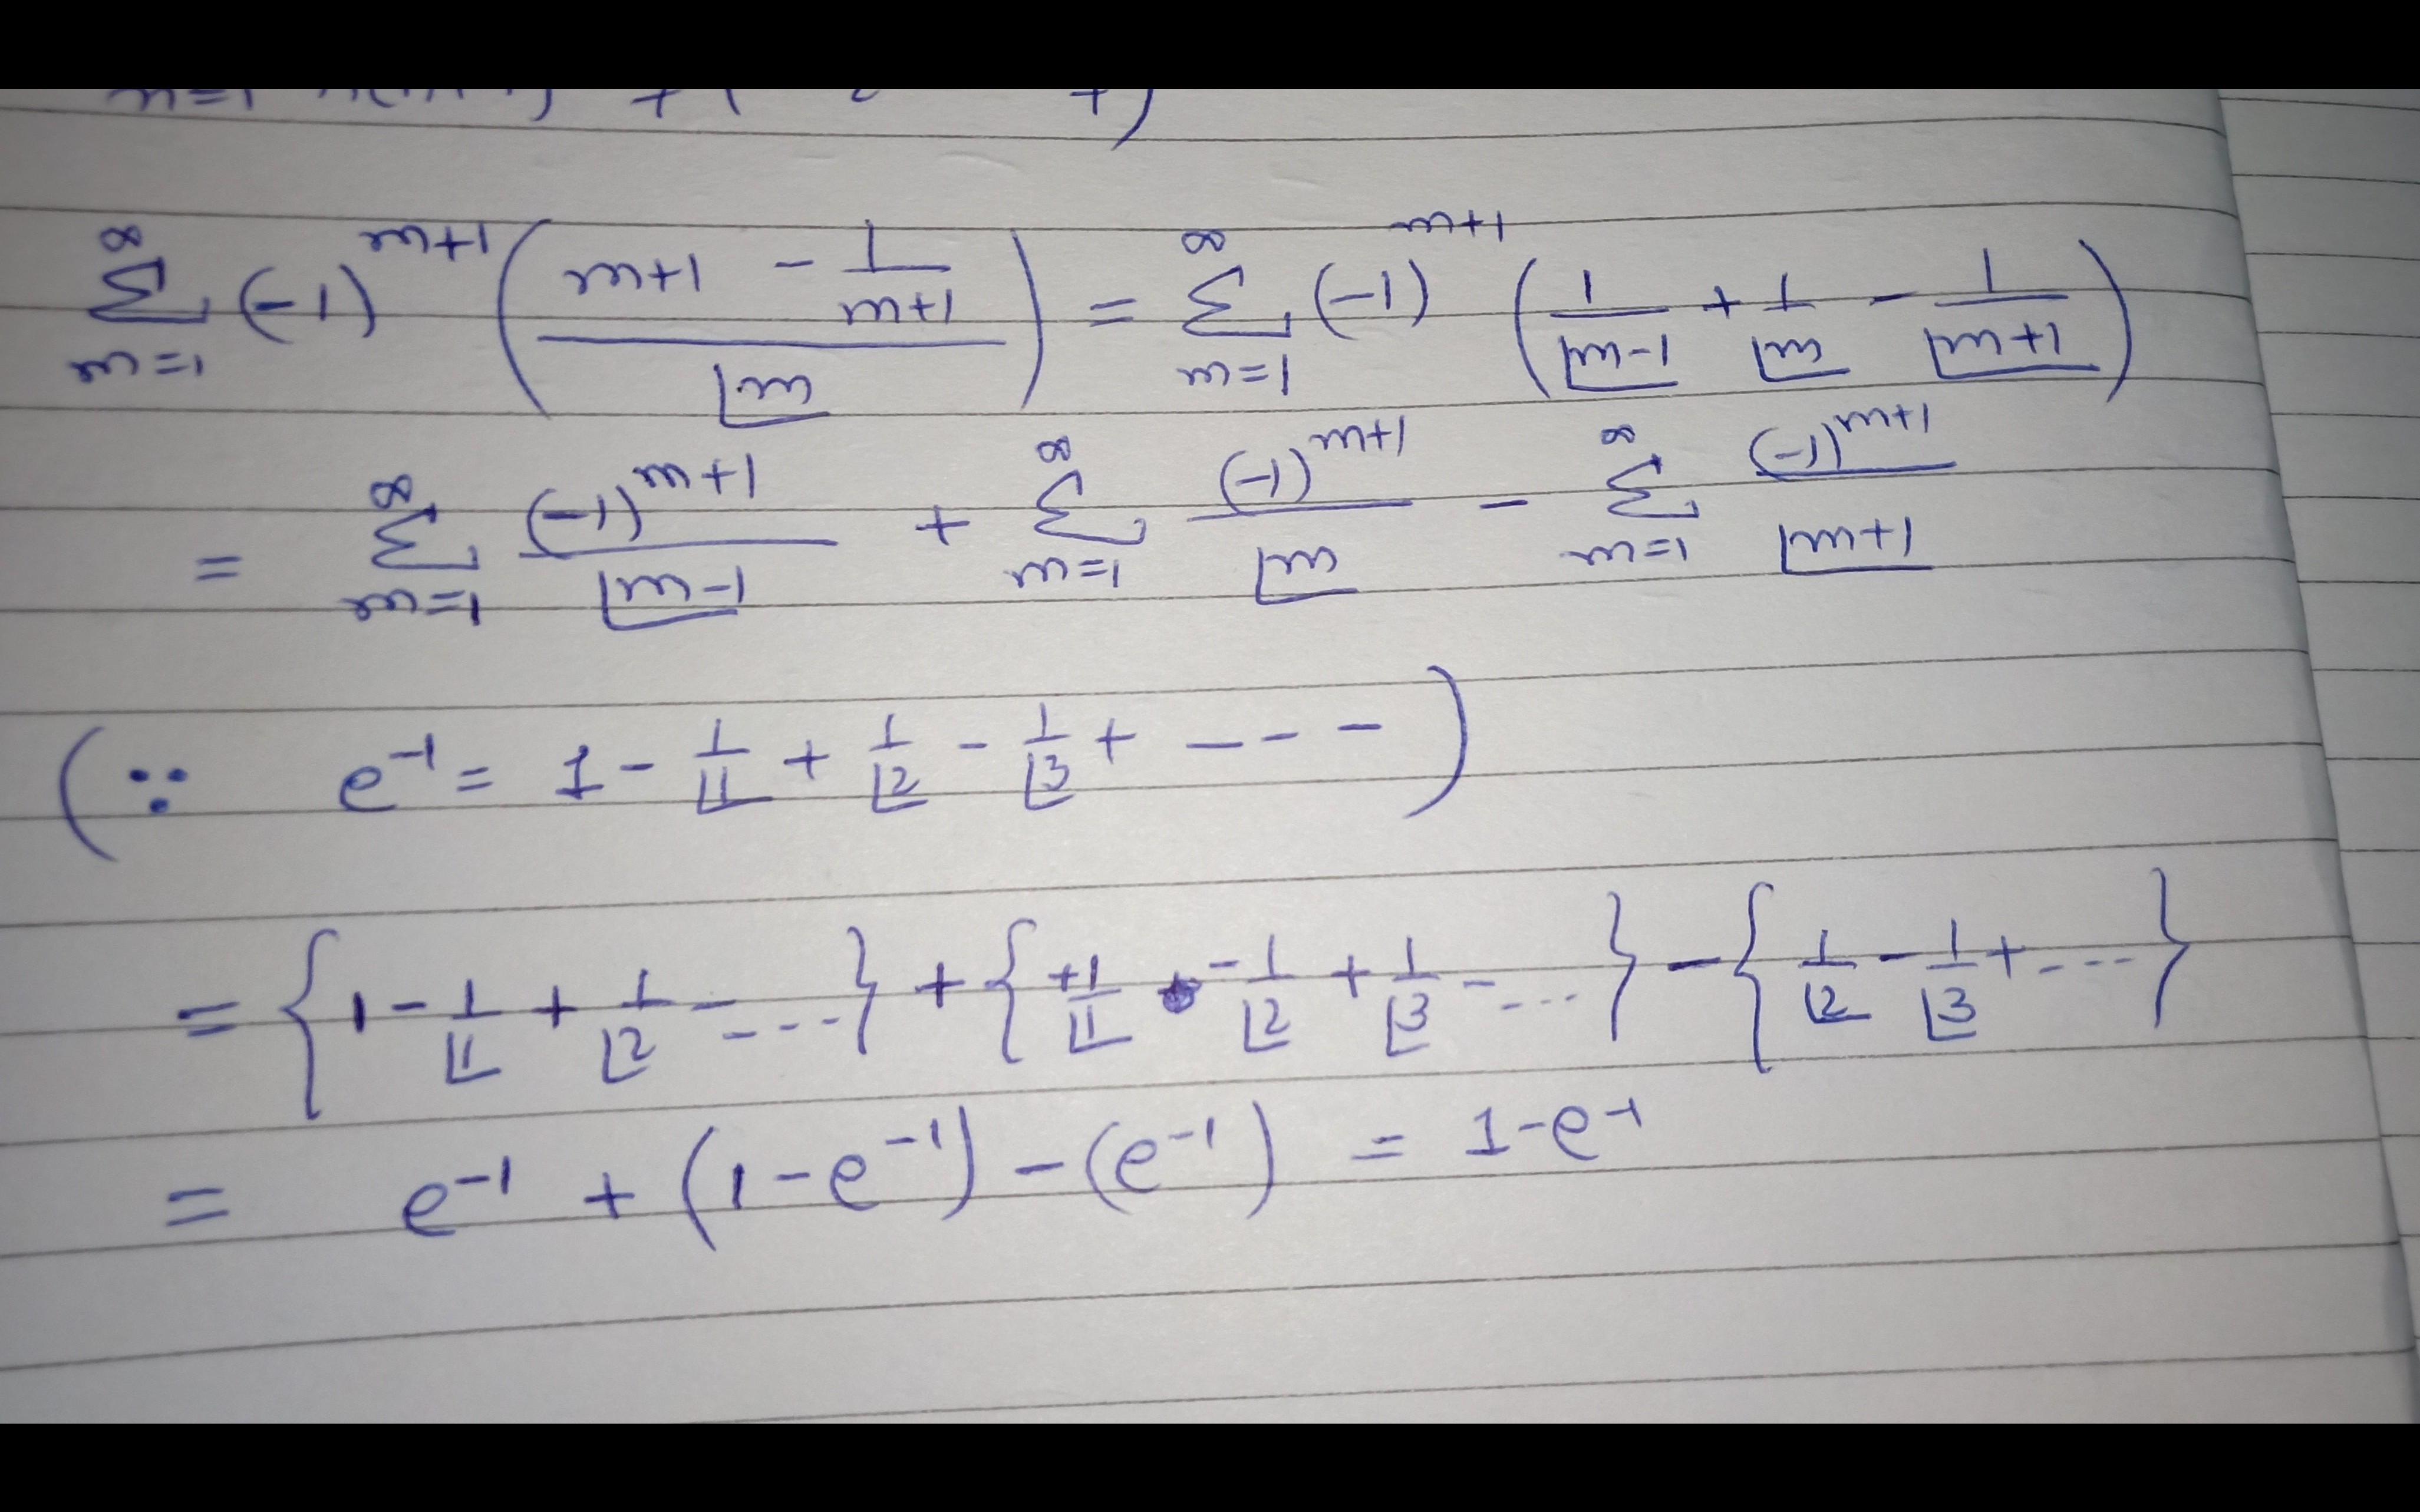 ∞ ∑ m=1 (-1)^{m+1} ( (m+1 - 1/(m+1)) / ⌊m ) = ∞ ∑ m=1 (-1)^{m+1} ( 1/⌊m-1 + 1/⌊m - 1/⌊m+1 )
= ∞ ∑ m=1 (-1)^{m+1}/⌊m-1 + ∞ ∑ m=1 (-1)^{m+1}/⌊m - ∞ ∑ m=1 (-1)^{m+1}/⌊m+1
( ∵ e^{-1} = 1 - 1/⌊1 + 1/⌊2 - 1/⌊3 + - - - )
= { 1 - 1/⌊1 + 1/⌊2 - .... } + { +1/⌊1 - 1/⌊2 + 1/⌊3 - .... } - { 1/⌊2 - 1/⌊3 + .... }
= e^{-1} + (1 - e^{-1}) - (e^{-1}) = 1 - e^{-1}